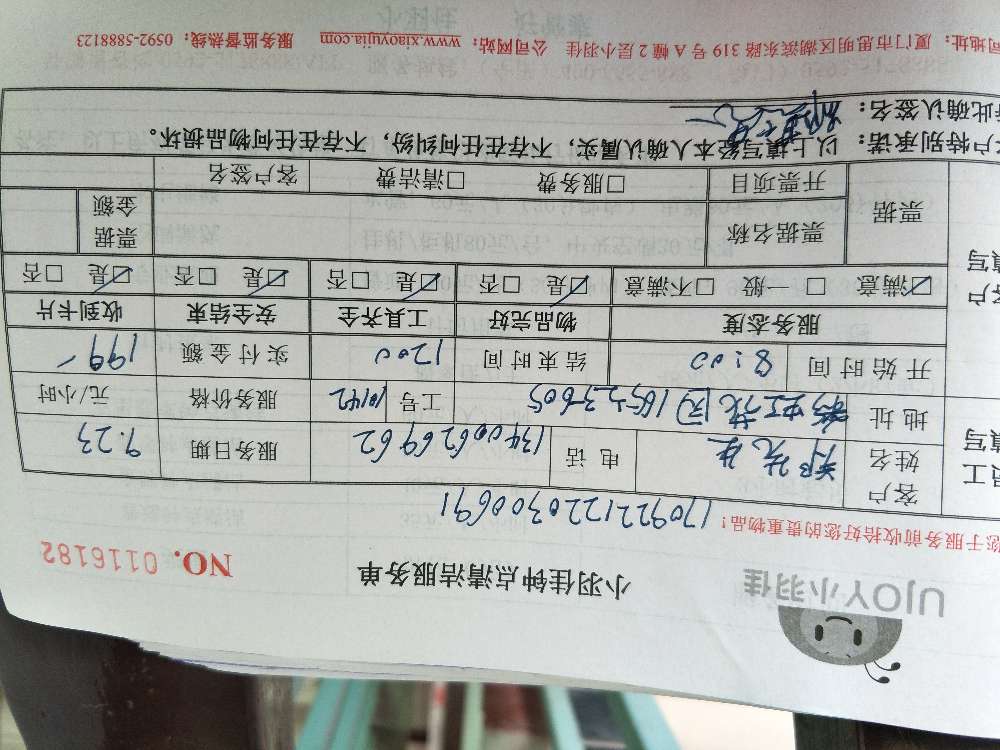 UJOY小羽佳
小羽佳钟点清洁服务单
NO. 0116182
您于服务前收拾好您的贵重物品!
170922122030069 1
客户姓名 郑先生 电话 13400626962 服务日期 9.23
地址 工号 10142 服务价格 元/小时
开始时间 8:00 结束时间 1200 实付金额 199
服务态度 物品完好 工具齐全 安全结束 收到卡片
☑满意 □一般 □不满意 ☑是 □否 ☑是 □否 ☑是 □否 ☑是 □否
票据 票据名称 票据金额
开票项目 □服务费 □清洁费 客户签名
客户特别承诺: 以上填写经本人确认属实,不存在任何纠纷,不存在任何物品损坏。
此确认签名:
司地址: 厦门市思明区湖滨东路 319 号 A 幢 2 层小羽佳 公司网站: www.xiaoyujia.com 服务监督热线: 0592-5888123